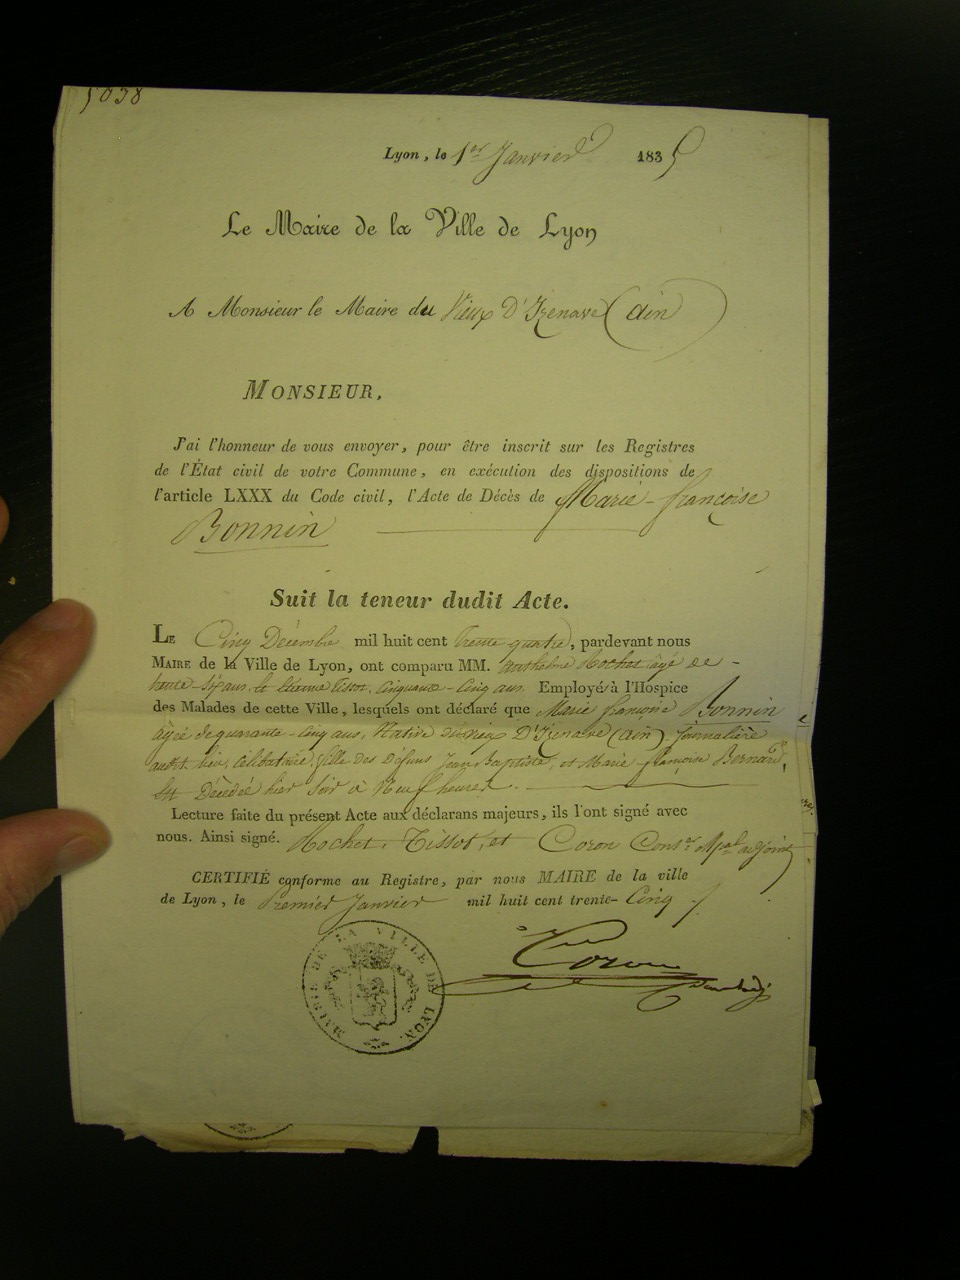 5038
Lyon, le 1er Janvier 1835
Le Maire de la Ville de Lyon
A Monsieur le Maire du Vieux D'Izenave (ain)
MONSIEUR,
J'ai l'honneur de vous envoyer, pour être inscrit sur les Registres
de l'État civil de votre Commune, en exécution des dispositions de
l'article LXXX du Code civil, l'Acte de Décès de Marie-françoise
Bonnin
Suit la teneur dudit Acte.
LE Cinq Décembre mil huit cent trente-quatre, pardevant nous
MAIRE de la Ville de Lyon, ont comparu MM. Anthelme Rochet agé de
trente-sept ans, et Etienne Tissot, Cinquante-Cinq ans Employés à l'Hospice
des Malades de cette Ville, lesquels ont déclaré que Marie françoise Bonnin
agée de quarante-Cinq ans, Native du vieux D'Izenave (ain), Journalière
audit lieu, Célibataire, fille des Défunts Jean Baptiste, et Marie-françoise Bernard,
Est Décédée hier soir à Neuf heures.
Lecture faite du présent Acte aux déclarans majeurs, ils l'ont signé avec
nous. Ainsi signé. Rochet, Tissot, et Coron Conser Mpal adjoint
CERTIFIÉ conforme au Registre, par nous MAIRE de la ville
de Lyon, le Premier Janvier mil huit cent trente-Cinq
Coron
MAIRIE DE LA VILLE DE LYON